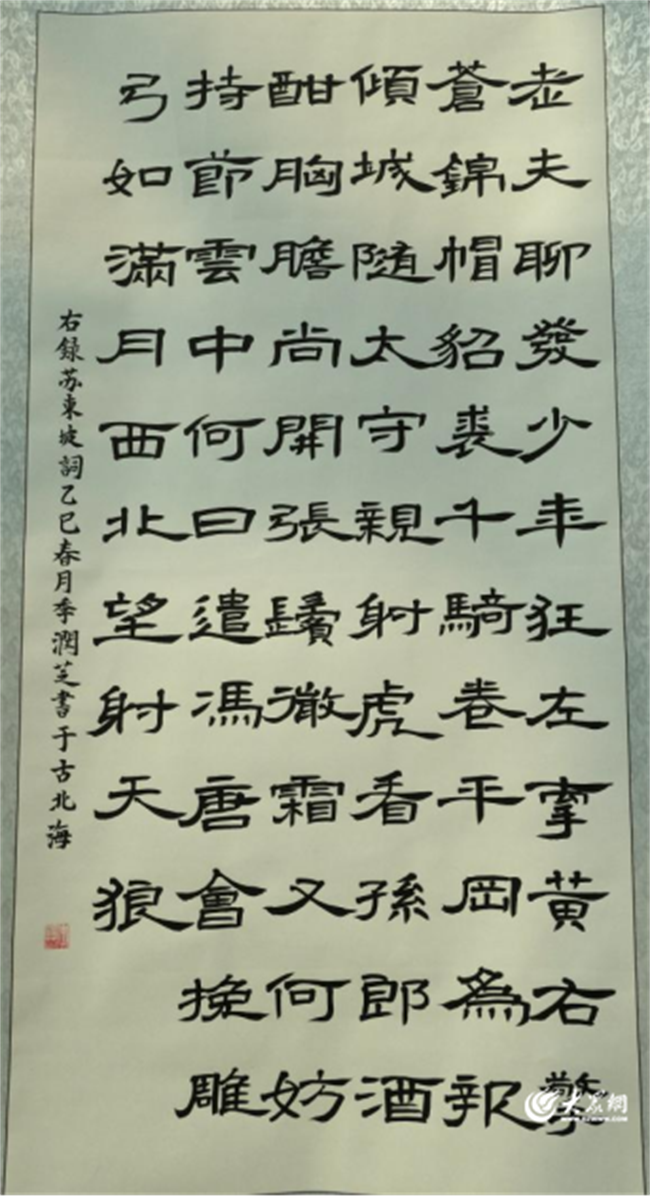 老夫聊發少年狂左牽黃右擎
蒼錦帽貂裘千騎卷平岡為報
傾城隨太守親射虎看孫郎酒
酣胸膽尚開張鬢微霜又何妨
持節雲中何日遣馮唐會挽雕
弓如滿月西北望射天狼
右録苏東坡詞乙巳春月季潤芝書于古北海
大眾網